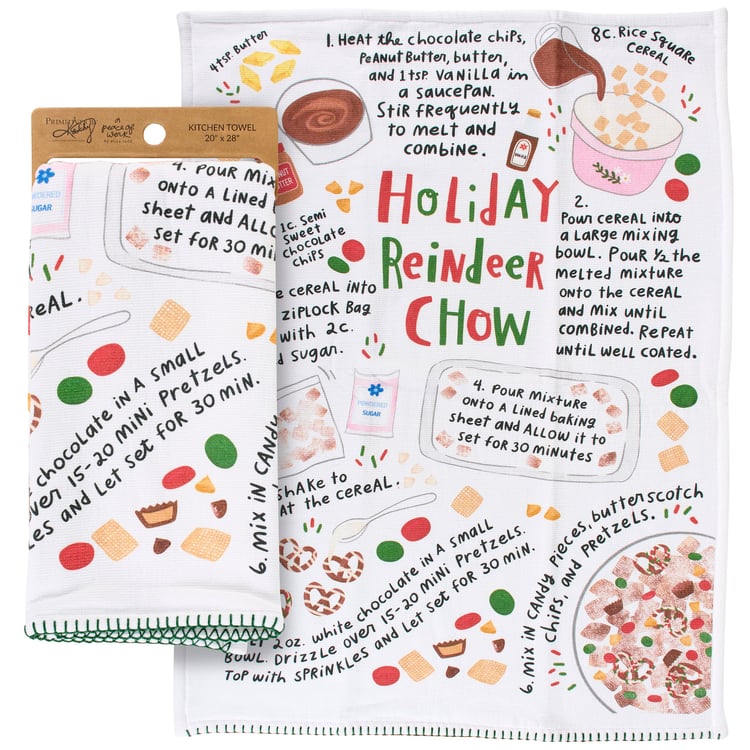 PRIMITIVES BY
Kathy
KITCHEN TOWEL
20" x 28"
POWDERED
SUGAR
4. POUR MIX
ONTO A LINED BA
SHEET AND ALLOW
SET FOR 30 MIN
REAL.
chocolate IN A SMALL
OVER 15-20 MINI PRETZELS.
LES AND LET SET FOR 30 MIN.
6. MIX IN CANDY
4 TSP. BUTTER
1. HEAT THE CHOCOLATE CHIPS,
PEANUT BUTTER, BUTTER,
AND 1 TSP. VANILLA IN
A SAUCEPAN.
STIR FREQUENTLY
TO MELT AND
COMBINE.
8C. RICE SQUARE
CEREAL
NUT
TTER
1C. SEMI
SWEET
CHOCOLATE
CHIPS
HOLIDAY
REINDEER
CHOW
2.
POUR CEREAL INTO
A LARGE MIXING
BOWL. POUR 1/2 THE
MELTED MIXTURE
ONTO THE CEREAL
AND MIX UNTIL
COMBINED. REPEAT
UNTIL WELL COATED.
CEREAL INTO
ZIPLOCK BAG
WITH 2C.
SUGAR.
POWDERED
SUGAR
SHAKE TO
AT THE CEREAL.
4. POUR MIXTURE
ONTO A LINED BAKING
SHEET AND ALLOW IT TO
SET FOR 30 MINUTES
2 OZ. WHITE CHOCOLATE IN A SMALL
BOWL. DRIZZLE OVER 15-20 MINI PRETZELS.
TOP WITH SPRINKLES AND LET SET FOR 30 MIN.
6. MIX IN CANDY PIECES, BUTTERSCOTCH
CHIPS, AND PRETZELS.